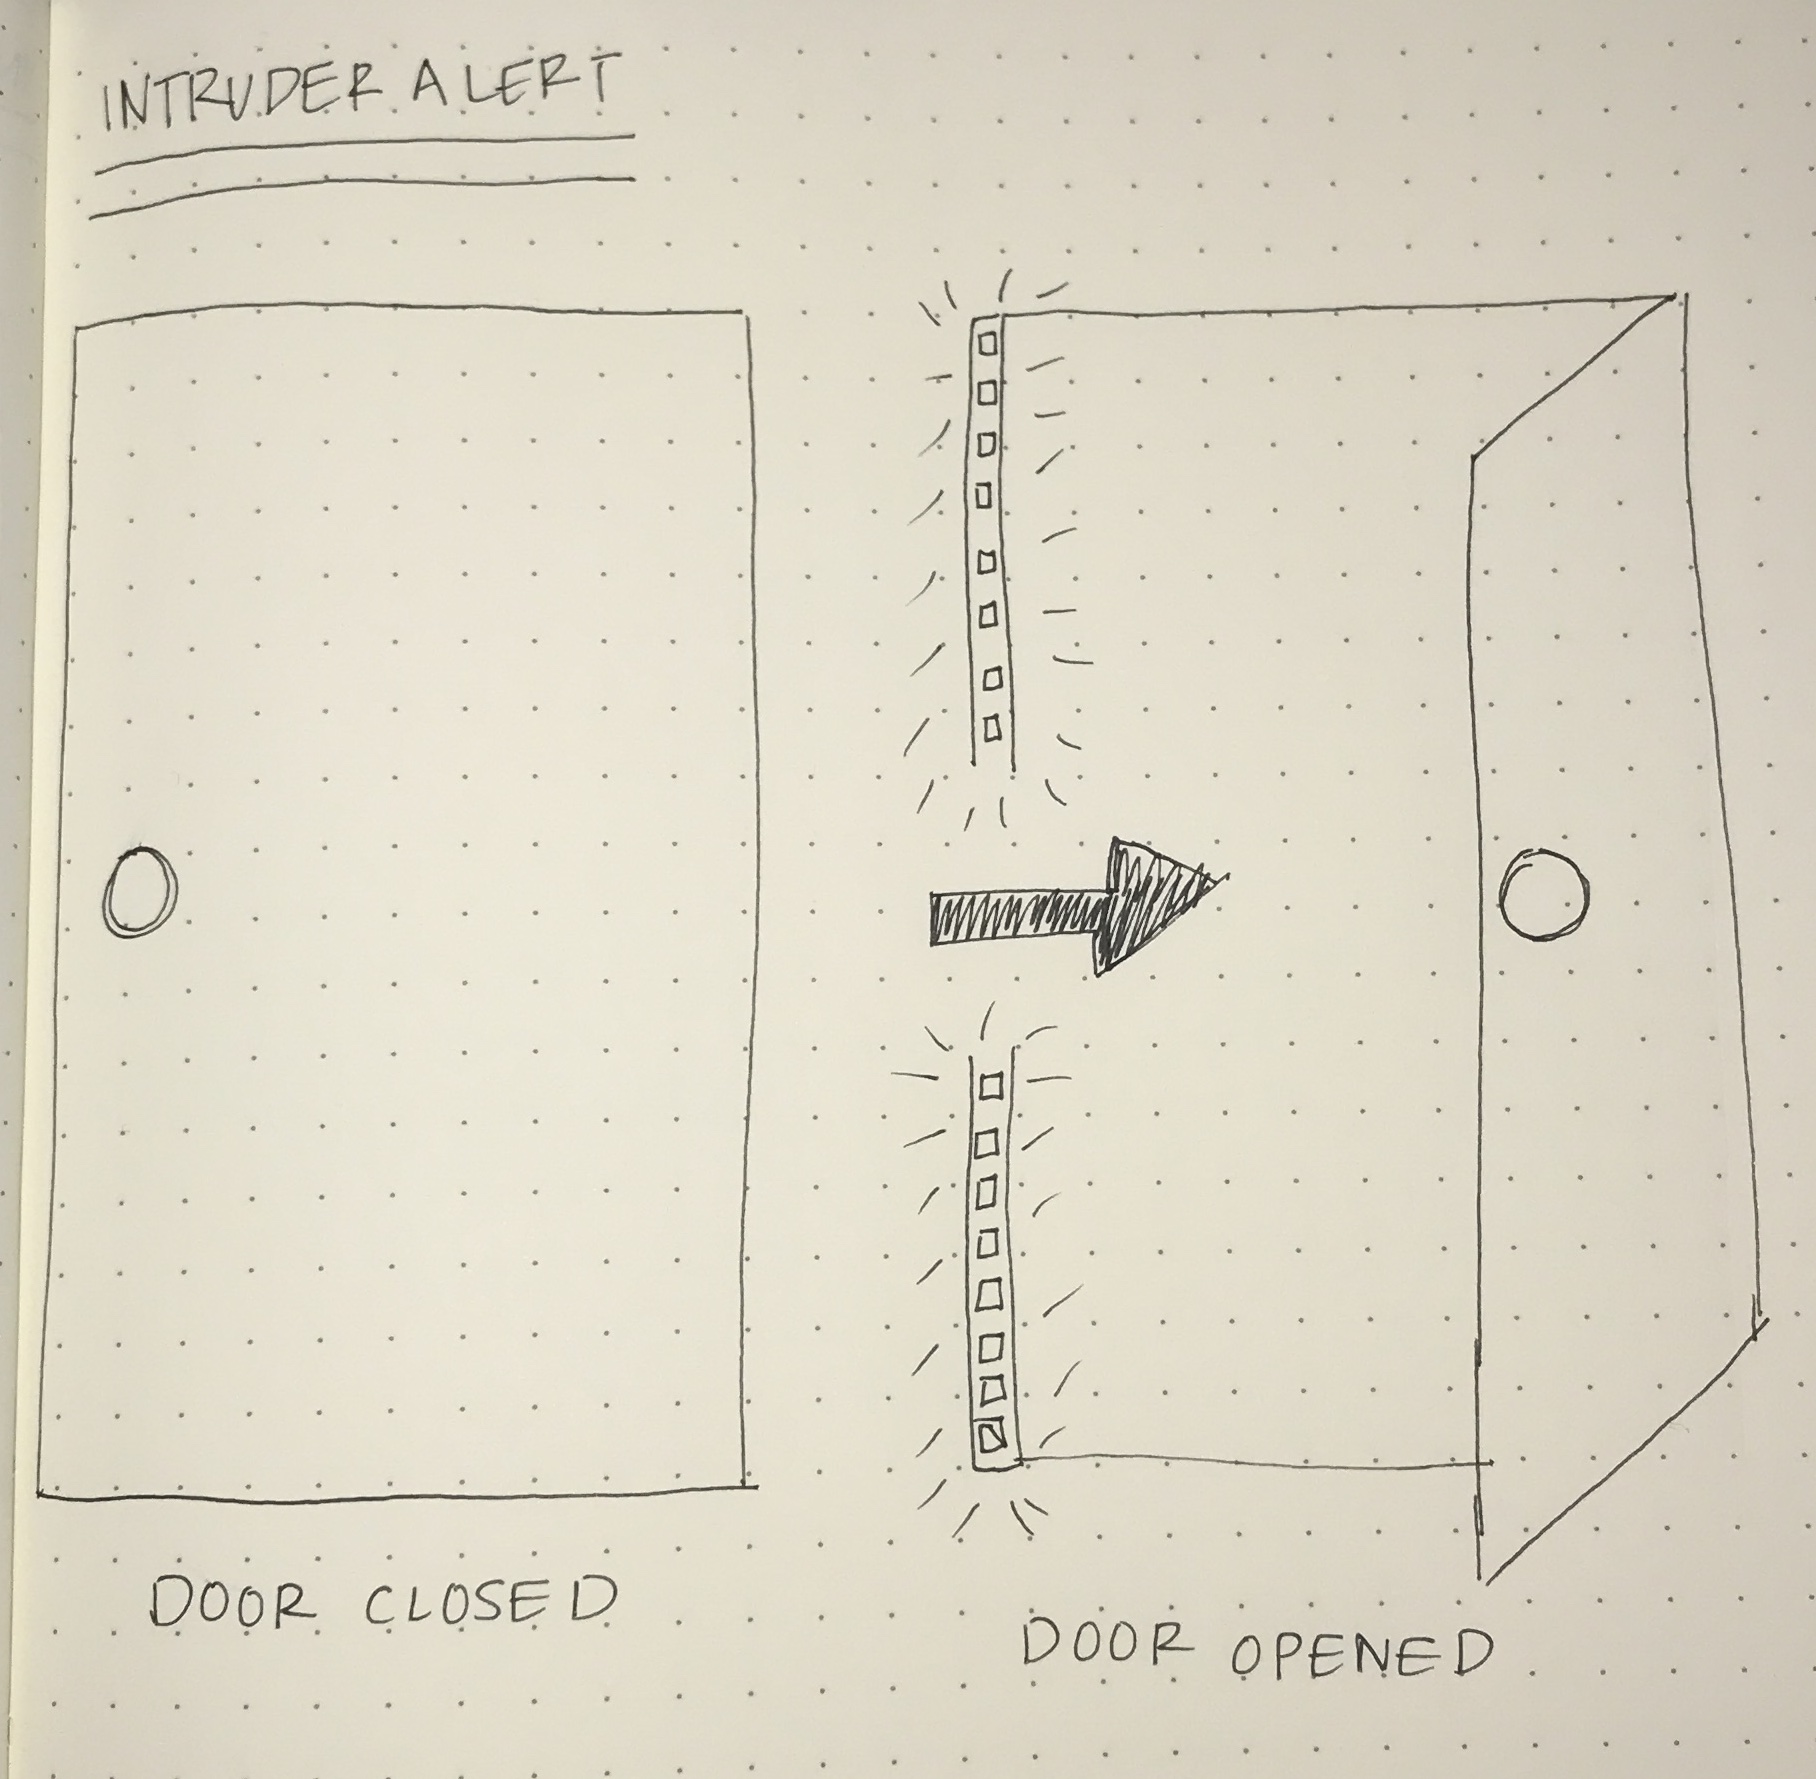 INTRUDER ALERT
DOOR CLOSED
DOOR OPENED